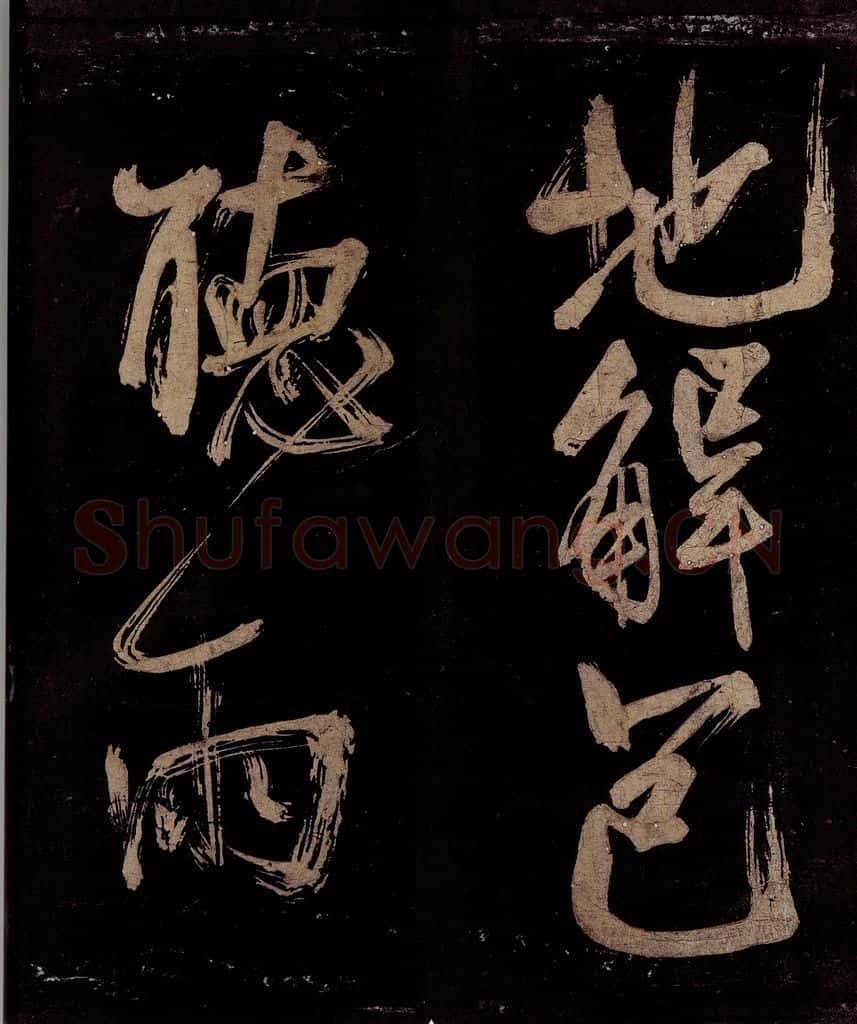 地解包
聽雨
ShufawangCN